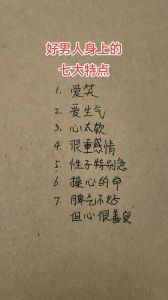 好男人身上的
七大特点
1. 爱笑
2. 爱生气
3. 心太软
4. 很重感情
5. 性子特别急
6. 操心的命
7. 脾气不好
但心很善良